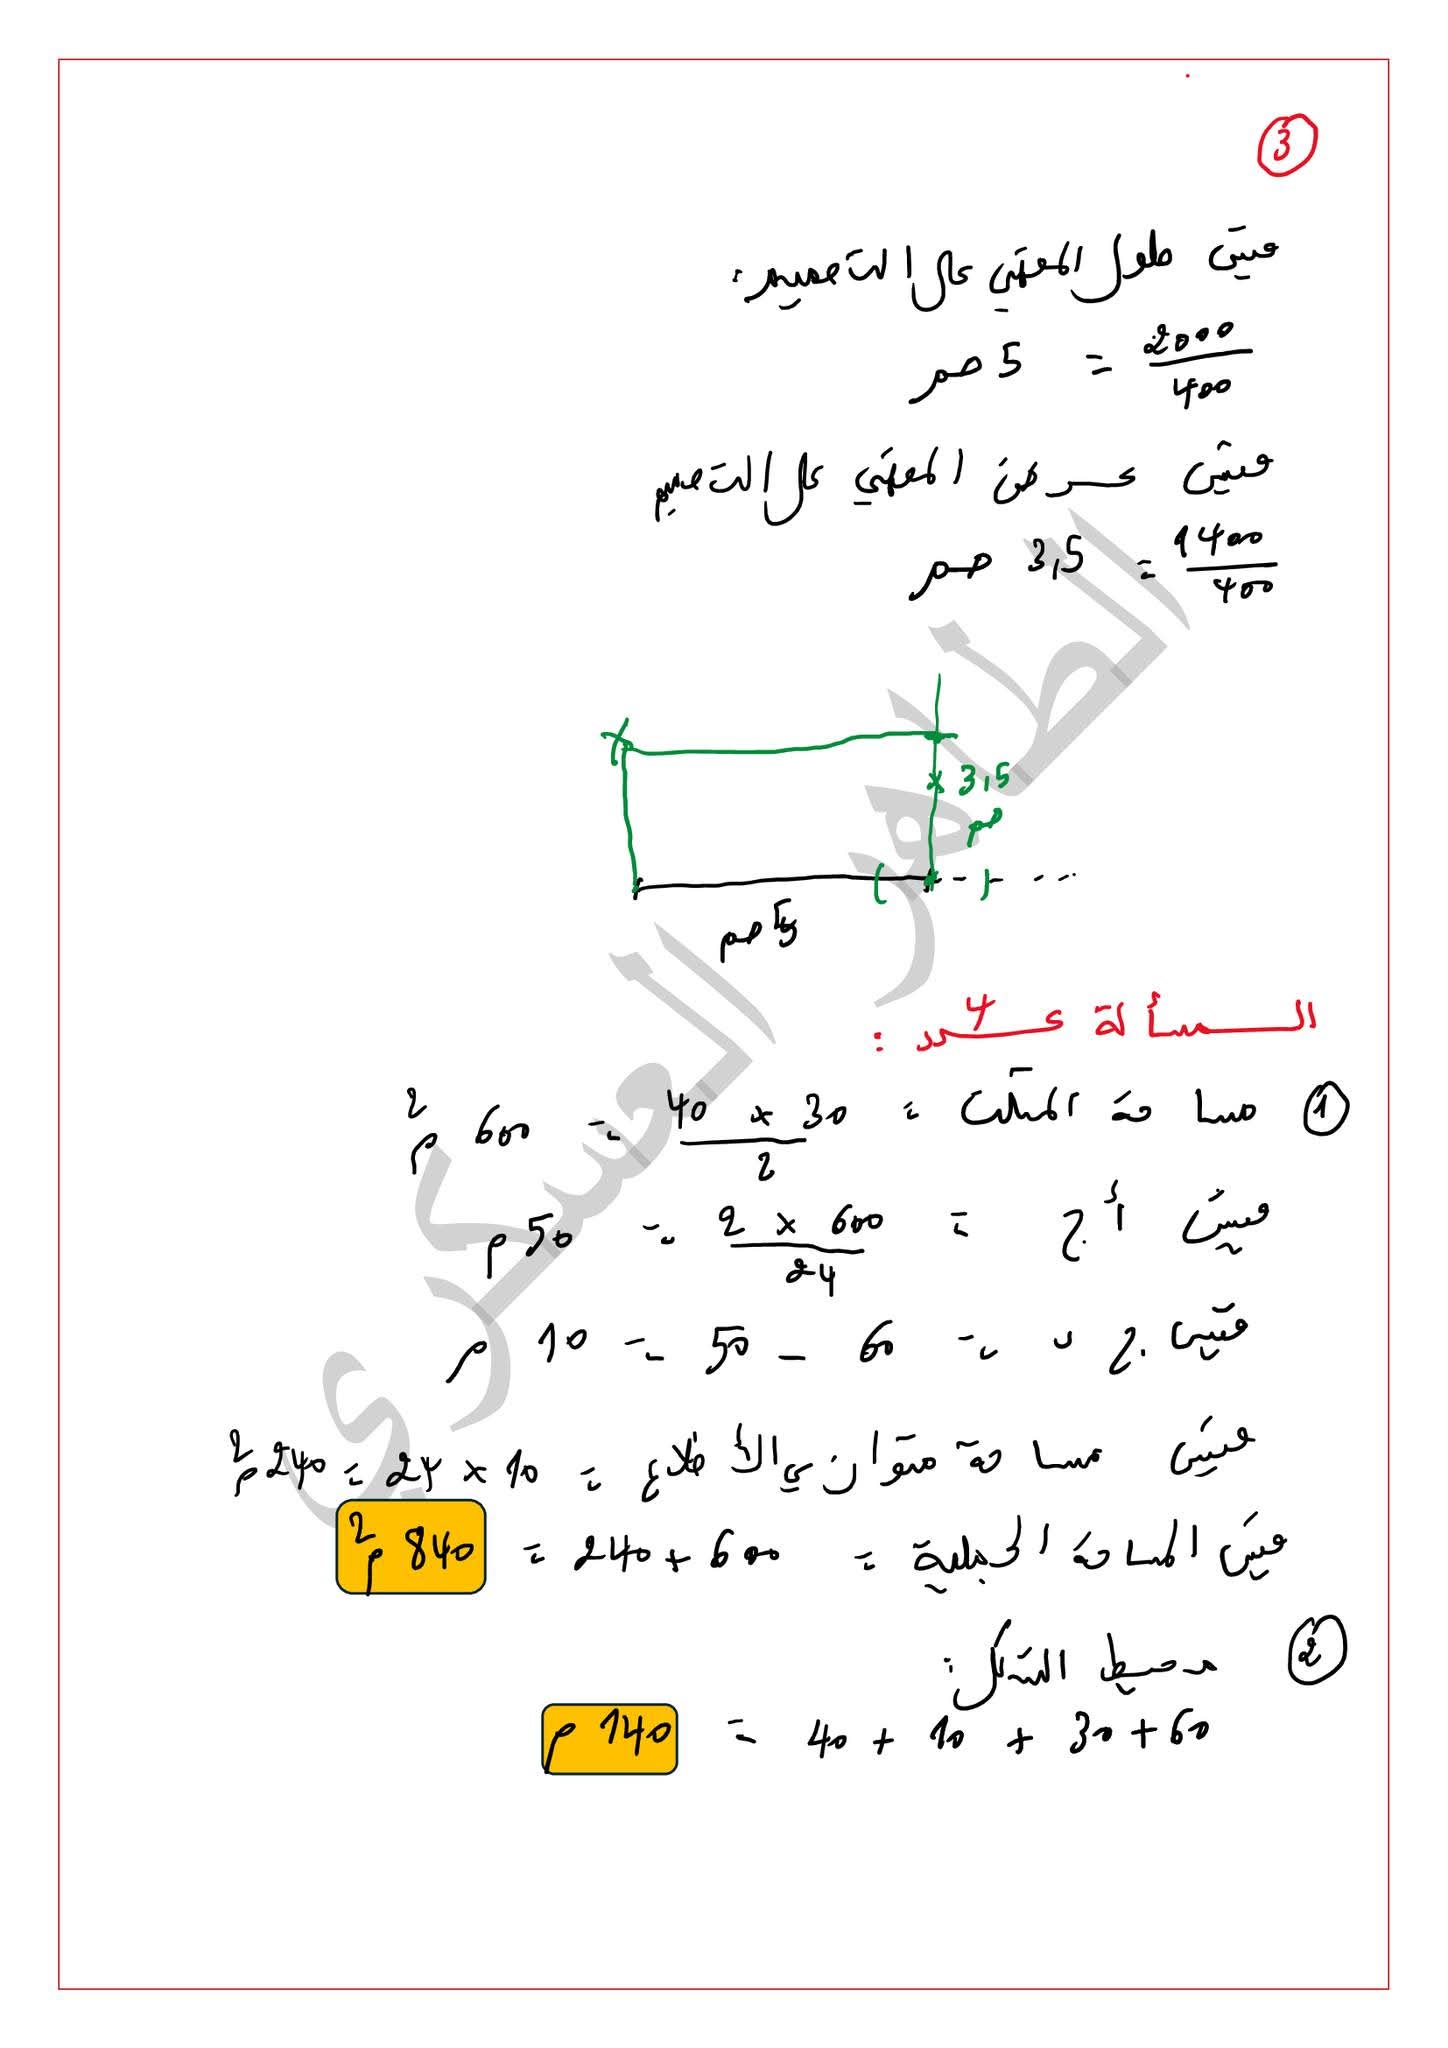 3
قيس طول المقهى على التصميم:
2000/400 = 5 صم
قيس عرض المقهى على التصميم
1400/400 = 3,5 صم
3,5
صم
5 صم
المسألة عـ4ـدد :
1 مساحة المثلث = 40 × 30 / 2 = 600 م2
قيس أ ج = 2 × 600 / 24 = 50 م
قيس ج = 60 - 50 = 10 م
قيس مساحة متوازي الأضلاع = 10 × 24 = 240 م2
قيس المساحة الجملية = 600 + 240 = 840 م2
2 محيط الشكل:
60 + 30 + 10 + 40 = 140 م
الطاهر العسكري